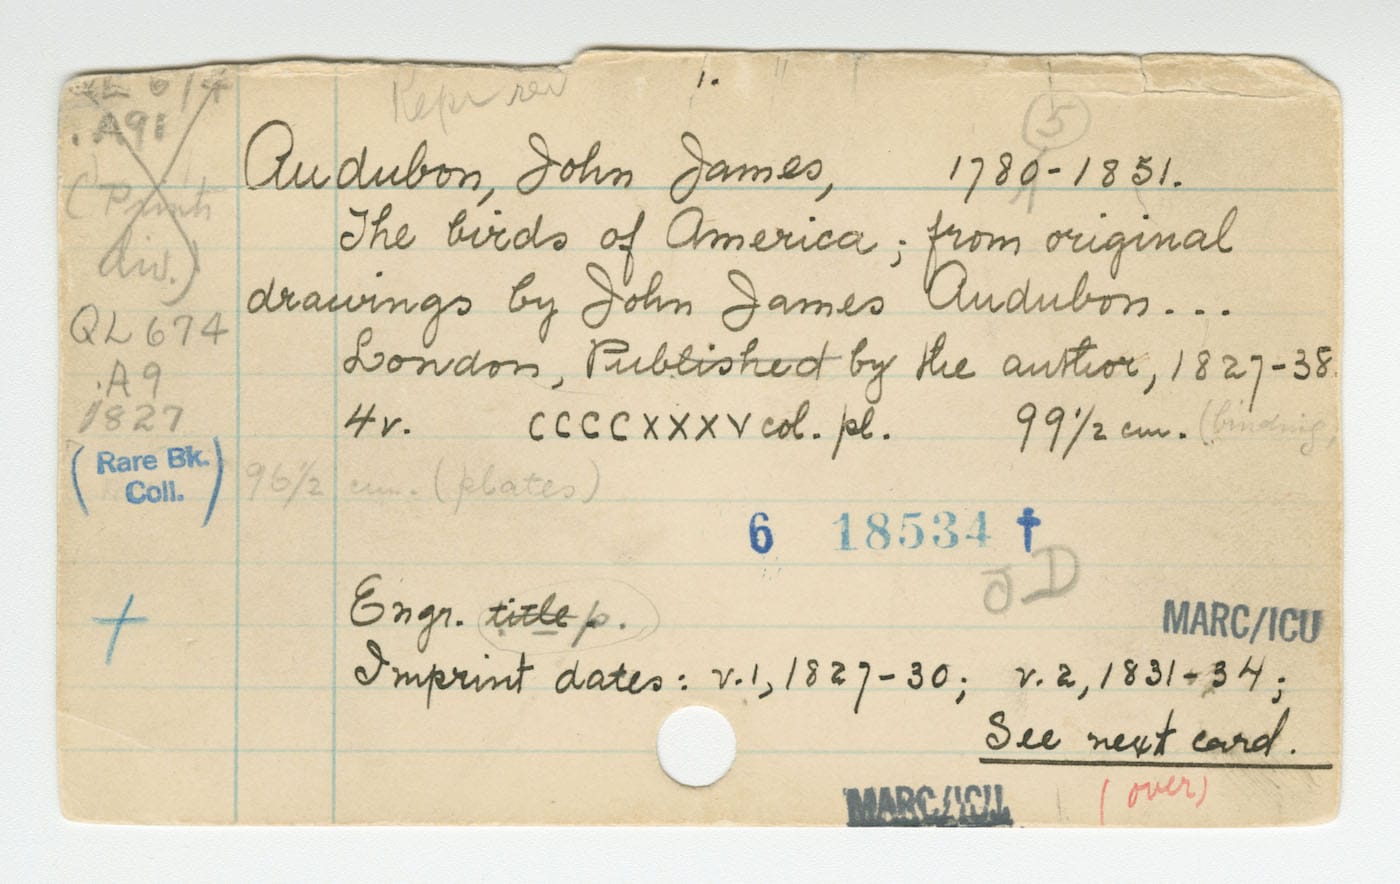 1.
QL 674
.A91
(Prints
div.)
QL 674
.A9
1827
(Rare Bk.
Coll.)
5
Audubon, John James, 1780-1851.
The birds of America; from original
drawings by John James Audubon...
London, Published by the author, 1827-38.
4v. CCCCXXXV col. pl. 99½ cm. (binding,
96½ cm. (plates)
6 18534 †
JD
Engr. title p.
MARC/ICU
Imprint dates: v.1, 1827-30; v.2, 1831-34;
See next card.
(over)
MARC/ICU